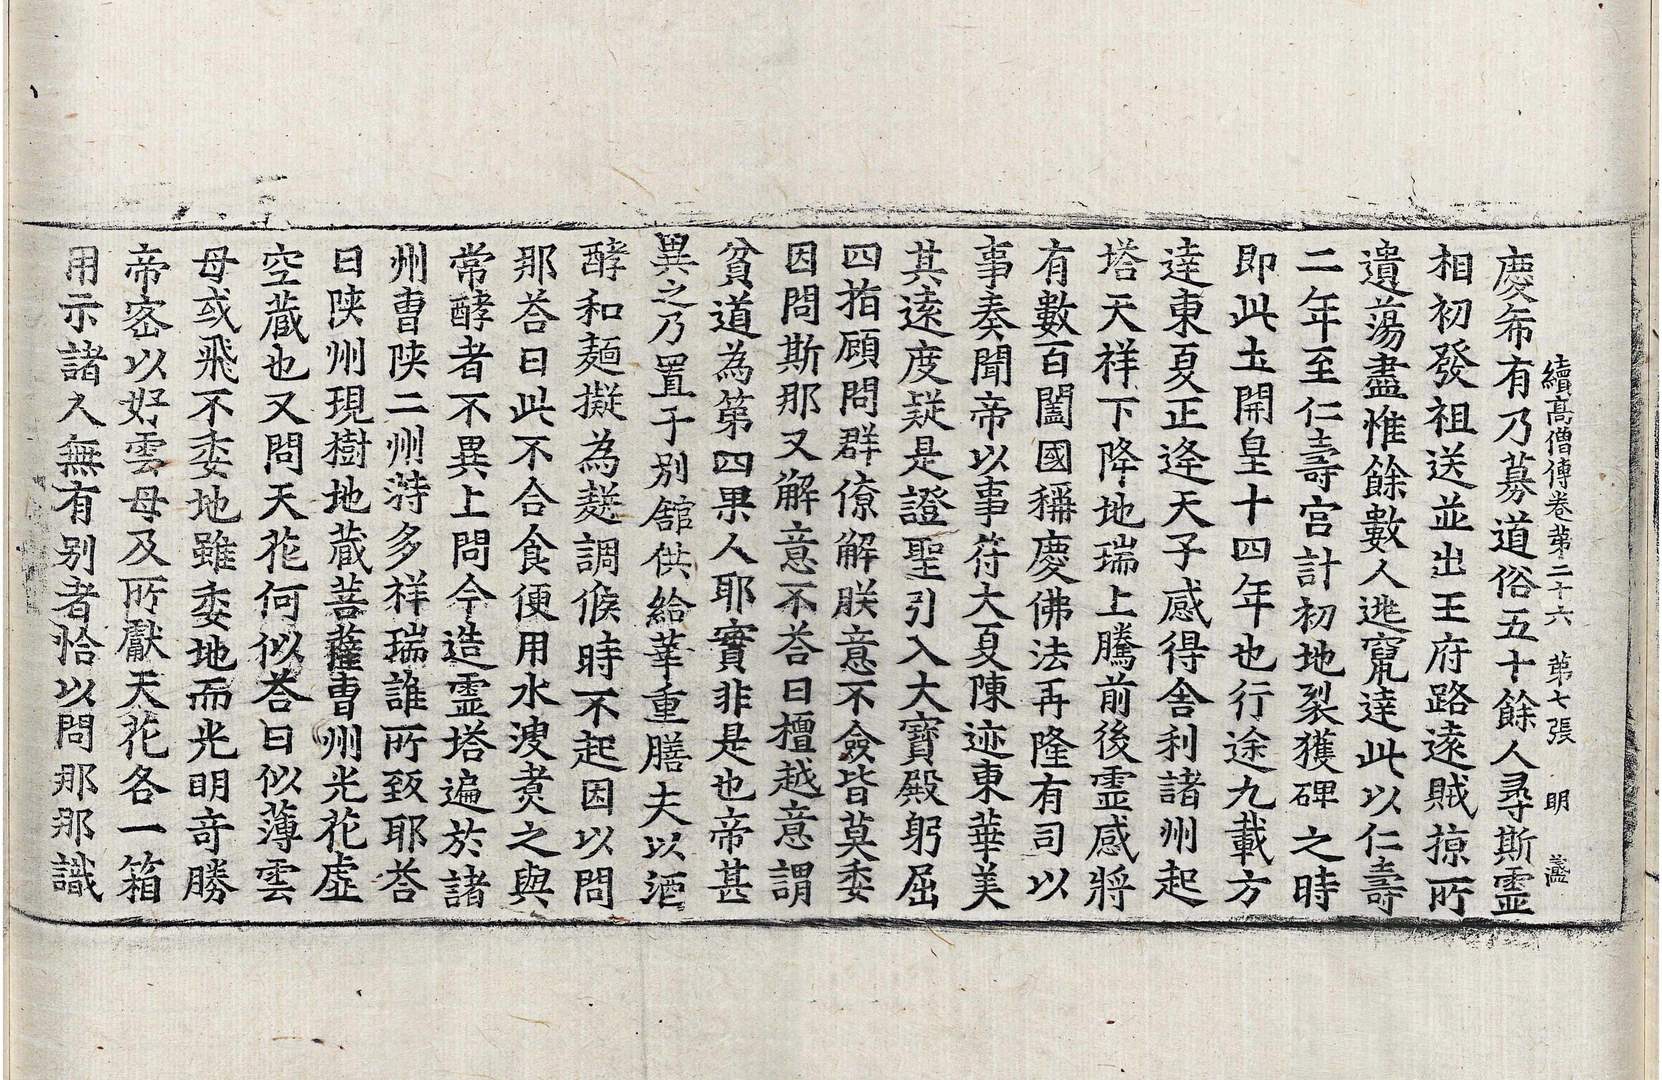 續高僧傳卷苐二十六　苐七張　明　盡
慶希有乃募道俗五十餘人尋斯霊
相初發祖送並出王府路遠賊掠所
遺蕩盡惟餘數人逃竄達此以仁壽
二年至仁壽宮計初地裂獲碑之時
即此土開皇十四年也行途九載方
達東夏正逢天子感得舍利諸州起
塔天祥下降地瑞上騰前後霊感將
有數百闔國稱慶佛法再隆有司以
事奏聞帝以事符大夏陳迹東華美
其遠度疑是證聖引入大寶殿躬屈
四指顧問群僚解朕意不僉皆莫委
因問斯那又解意不荅曰檀越意謂
貧道為第四果人耶實非是也帝甚
異之乃置于别舘供給華重膳夫以酒
酵和麺擬為麨調候時不起因以問
那荅曰此不合食便用水溲煑之與
常酵者不異上問今造霊塔遍於諸
州曹陝二州特多祥瑞誰所致耶荅
曰陝州現樹地蔵菩薩曹州光花虛
空蔵也又問天花何似荅曰似薄雲
母或飛不委地雖委地而光明奇勝
帝密以好雲母及所獻天花各一箱
用示諸人無有别者恰以問那那識